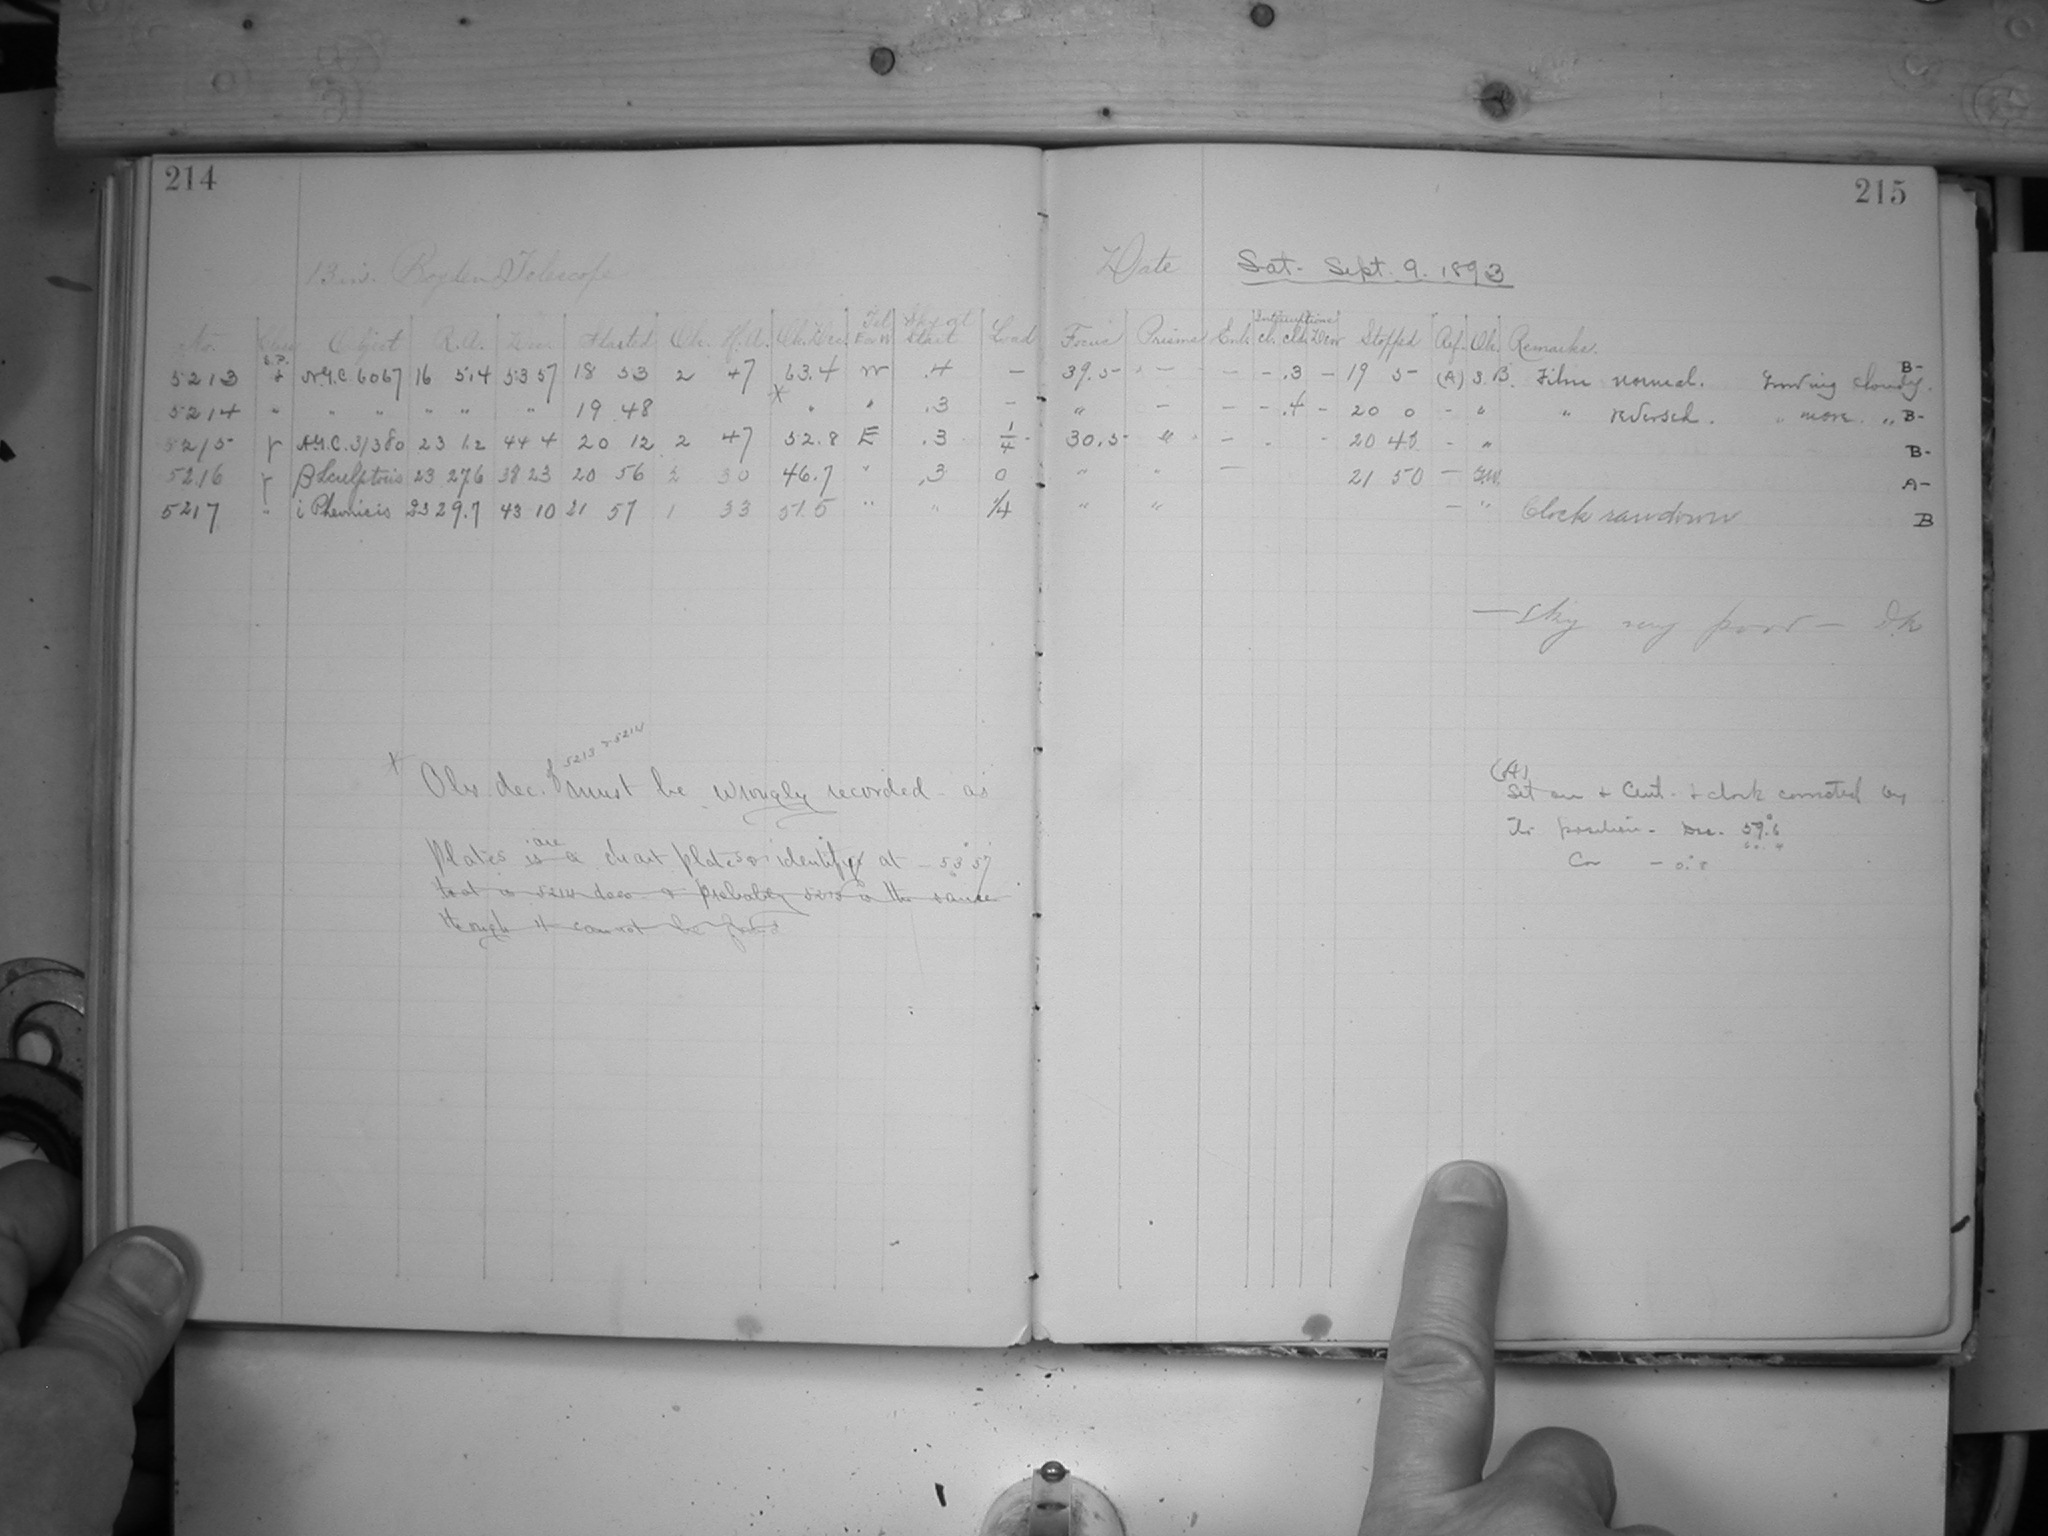 214
215
13 in. Boyden Telescope
Date Sat. Sept. 9. 1893
No. Class Object R.A. Dec. Started Obs. H.A. Obs. Dec. Tel. E or W Sky at Start Load Focus Prisms Interruptions cl. cld. Dew Stopped Ref. Ob. Remarks.
5213 N.G.C 6067 16 5.4 53 57 18 53 2 47 63.4 W .4 — 39.5 - — — - .3 — 19 5 (A) S.B. Film normal. Growing cloudy. B-
5214 " " " " " " 19 48 * " " .3 - " — — - .4 - 20 0 - " " reversed. " more. " B-
5215 A.G.C. 31380 23 1.2 44 4 20 12 2 47 52.8 E .3 1/4 30.5 " - 20 45 - " B-
5216 β Sculptoris 23 27.6 38 23 20 56 2 30 46.7 " .3 0 " " — 21 50 — A-
5217 " i Phoenicis 23 29.7 43 10 21 57 1 33 51.5 " " 1/4 " " — " Clock ran down B
— Sky very poor —
* Obs. dec. of 5213 & 5214 must be wrongly recorded - as
Plates are is a chart plates & identify at - 53° 57'
that is 5214 does & probably 5213 is the same
though it cannot be found
(A)
Set on + Cent. + clock corrected by
The position - Dec. 59.6
60.4
Cor - 0.°8